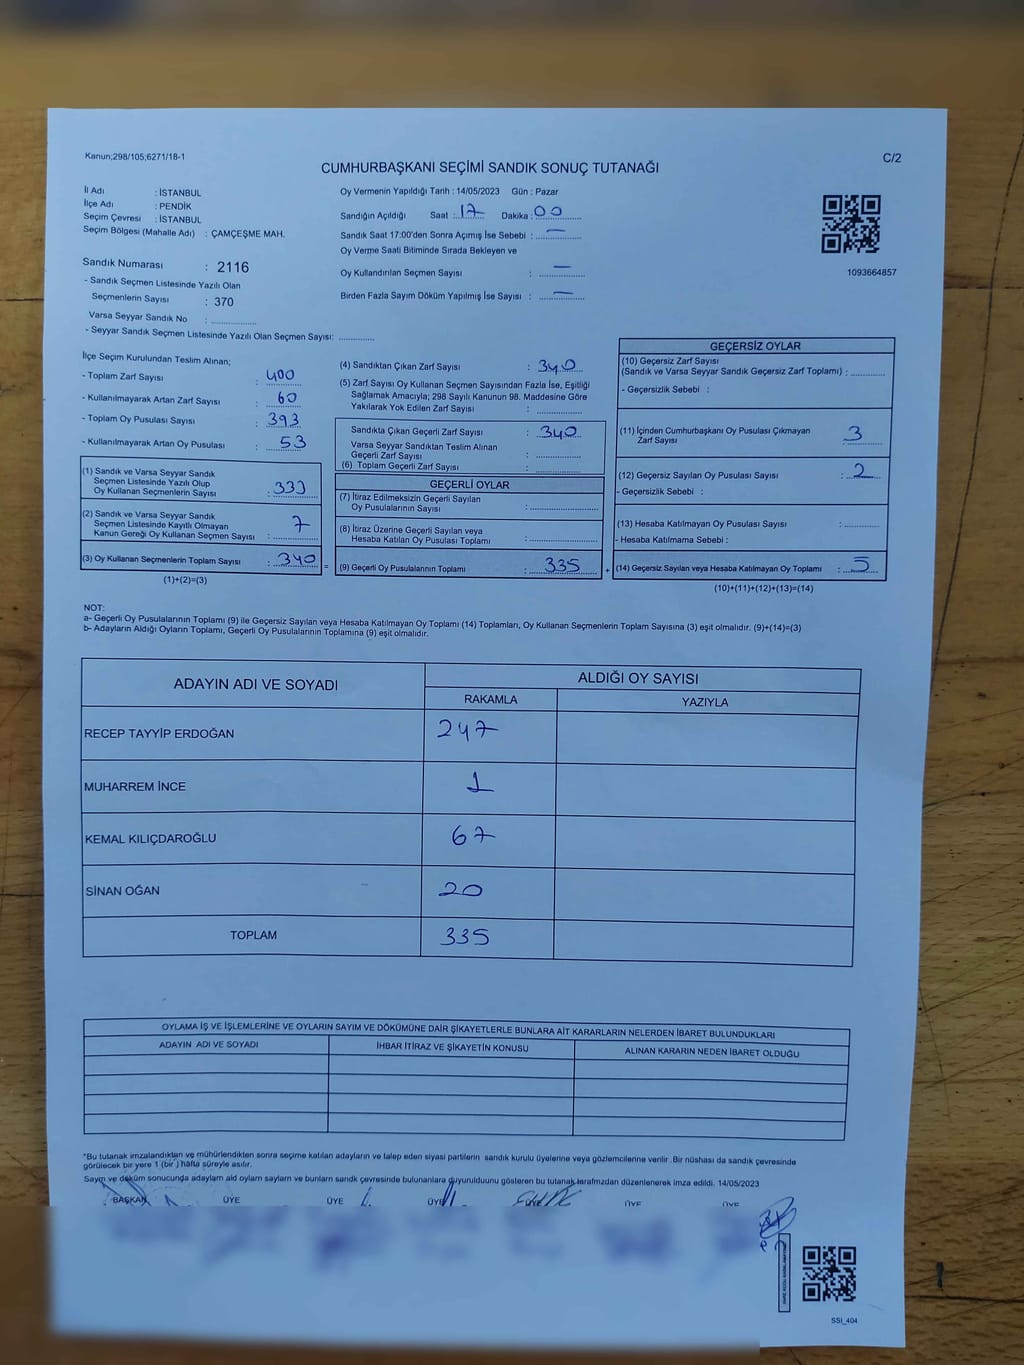 Kanun;298/105;6271/18-1
C/2
CUMHURBAŞKANI SEÇİMİ SANDIK SONUÇ TUTANAĞI
İl Adı : İSTANBUL
İlçe Adı : PENDİK
Seçim Çevresi : İSTANBUL
Seçim Bölgesi (Mahalle Adı) : ÇAMÇEŞME MAH.
Sandık Numarası : 2116
- Sandık Seçmen Listesinde Yazılı Olan
Seçmenlerin Sayısı : 370
Varsa Seyyar Sandık No :
- Seyyar Sandık Seçmen Listesinde Yazılı Olan Seçmen Sayısı:
Oy Vermenin Yapıldığı Tarih : 14/05/2023 Gün : Pazar
Sandığın Açıldığı Saat : 17 Dakika : 00
Sandık Saat 17:00'den Sonra Açımış İse Sebebi : —
Oy Verme Saati Bitiminde Sırada Bekleyen ve
Oy Kullandırılan Seçmen Sayısı : —
Birden Fazla Sayım Döküm Yapılmış İse Sayısı : —
1093664857
İlçe Seçim Kurulundan Teslim Alınan;
- Toplam Zarf Sayısı : 400
- Kullanılmayarak Artan Zarf Sayısı : 60
- Toplam Oy Pusulası Sayısı : 393
- Kullanılmayarak Artan Oy Pusulası : 53
(1) Sandık ve Varsa Seyyar Sandık
Seçmen Listesinde Yazılı Olup
Oy Kullanan Seçmenlerin Sayısı : 333
(2) Sandık ve Varsa Seyyar Sandık
Seçmen Listesinde Kayıtlı Olmayan
Kanun Gereği Oy Kullanan Seçmen Sayısı : 7
(3) Oy Kullanan Seçmenlerin Toplam Sayısı : 340
(1)+(2)=(3)
(4) Sandıktan Çıkan Zarf Sayısı : 340
(5) Zarf Sayısı Oy Kullanan Seçmen Sayısından Fazla İse, Eşitliği
Sağlamak Amacıyla; 298 Sayılı Kanunun 98. Maddesine Göre
Yakılarak Yok Edilen Zarf Sayısı :
Sandıkta Çıkan Geçerli Zarf Sayısı : 340
Varsa Seyyar Sandıktan Teslim Alınan
Geçerli Zarf Sayısı :
(6) Toplam Geçerli Zarf Sayısı :
GEÇERLİ OYLAR
(7) İtiraz Edilmeksizin Geçerli Sayılan
Oy Pusulalarının Sayısı :
(8) İtiraz Üzerine Geçerli Sayılan veya
Hesaba Katılan Oy Pusulası Toplamı :
= (9) Geçerli Oy Pusulalarının Toplamı : 335
GEÇERSİZ OYLAR
(10) Geçersiz Zarf Sayısı
(Sandık ve Varsa Seyyar Sandık Geçersiz Zarf Toplamı) :
- Geçersizlik Sebebi :
(11) İçinden Cumhurbaşkanı Oy Pusulası Çıkmayan
Zarf Sayısı : 3
(12) Geçersiz Sayılan Oy Pusulası Sayısı : 2
- Geçersizlik Sebebi :
(13) Hesaba Katılmayan Oy Pusulası Sayısı :
- Hesaba Katılmama Sebebi :
+ (14) Geçersiz Sayılan veya Hesaba Katılmayan Oy Toplamı : 5
(10)+(11)+(12)+(13)=(14)
NOT:
a- Geçerli Oy Pusulalarının Toplamı (9) ile Geçersiz Sayılan veya Hesaba Katılmayan Oy Toplamı (14) Toplamları, Oy Kullanan Seçmenlerin Toplam Sayısına (3) eşit olmalıdır. (9)+(14)=(3)
b- Adayların Aldığı Oyların Toplamı, Geçerli Oy Pusulalarının Toplamına (9) eşit olmalıdır.
ADAYIN ADI VE SOYADI ALDIĞI OY SAYISI
RAKAMLA YAZIYLA
RECEP TAYYİP ERDOĞAN 247
MUHARREM İNCE 1
KEMAL KILIÇDAROĞLU 67
SİNAN OĞAN 20
TOPLAM 335
OYLAMA İŞ VE İŞLEMLERİNE VE OYLARIN SAYIM VE DÖKÜMÜNE DAİR ŞİKAYETLERLE BUNLARA AİT KARARLARIN NELERDEN İBARET BULUNDUKLARI
ADAYIN ADI VE SOYADI İHBAR İTİRAZ VE ŞİKAYETİN KONUSU ALINAN KARARIN NEDEN İBARET OLDUĞU
*Bu tutanak imzalandıktan ve mühürlendikten sonra seçime katılan adayların ve talep eden siyasi partilerin sandık kurulu üyelerine veya gözlemcilerine verilir .Bir nüshası da sandık çevresinde
görülecek bir yere 1 (bir ) hafta süreyle asılır.
Sayım ve döküm sonucunda adayların aldığı oyların sayıları ve bunların sandık çevresinde bulunanlara duyurulduunu gösteren bu tutanak tarafımızdan düzenlenerek imza edildi. 14/05/2023
BAŞKAN ÜYE ÜYE ÜYE ÜYE ÜYE ÜYE
SSİ_404